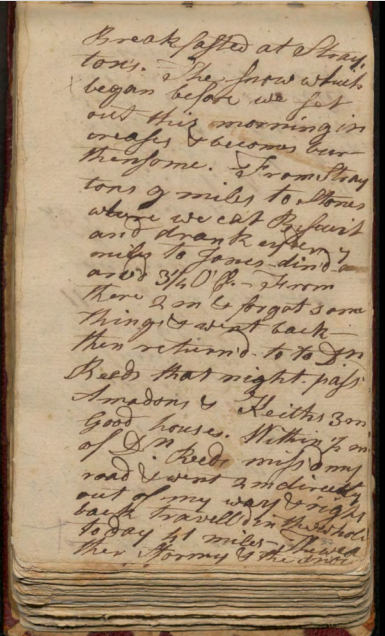 Breakfasted at Stray
tons. The snow which
began before we set
out this morning in
creases & becomes bur
thensome. From Stray
tons 9 miles to Stones
where we eat Biscuit
and drank cyder, 7
miles to Jones din'd
3/40
there 2 m & forgot some
things & went back
then return'd to to Dn
Reeds that night. pass
Amadons & Keiths 3 m
Good houses. Within
of Dn Reeds miss'd my
road & went 2 m directly
out of my way & right
back travell'd in the whole
today 41 miles. The wea
ther Stormy & the snow